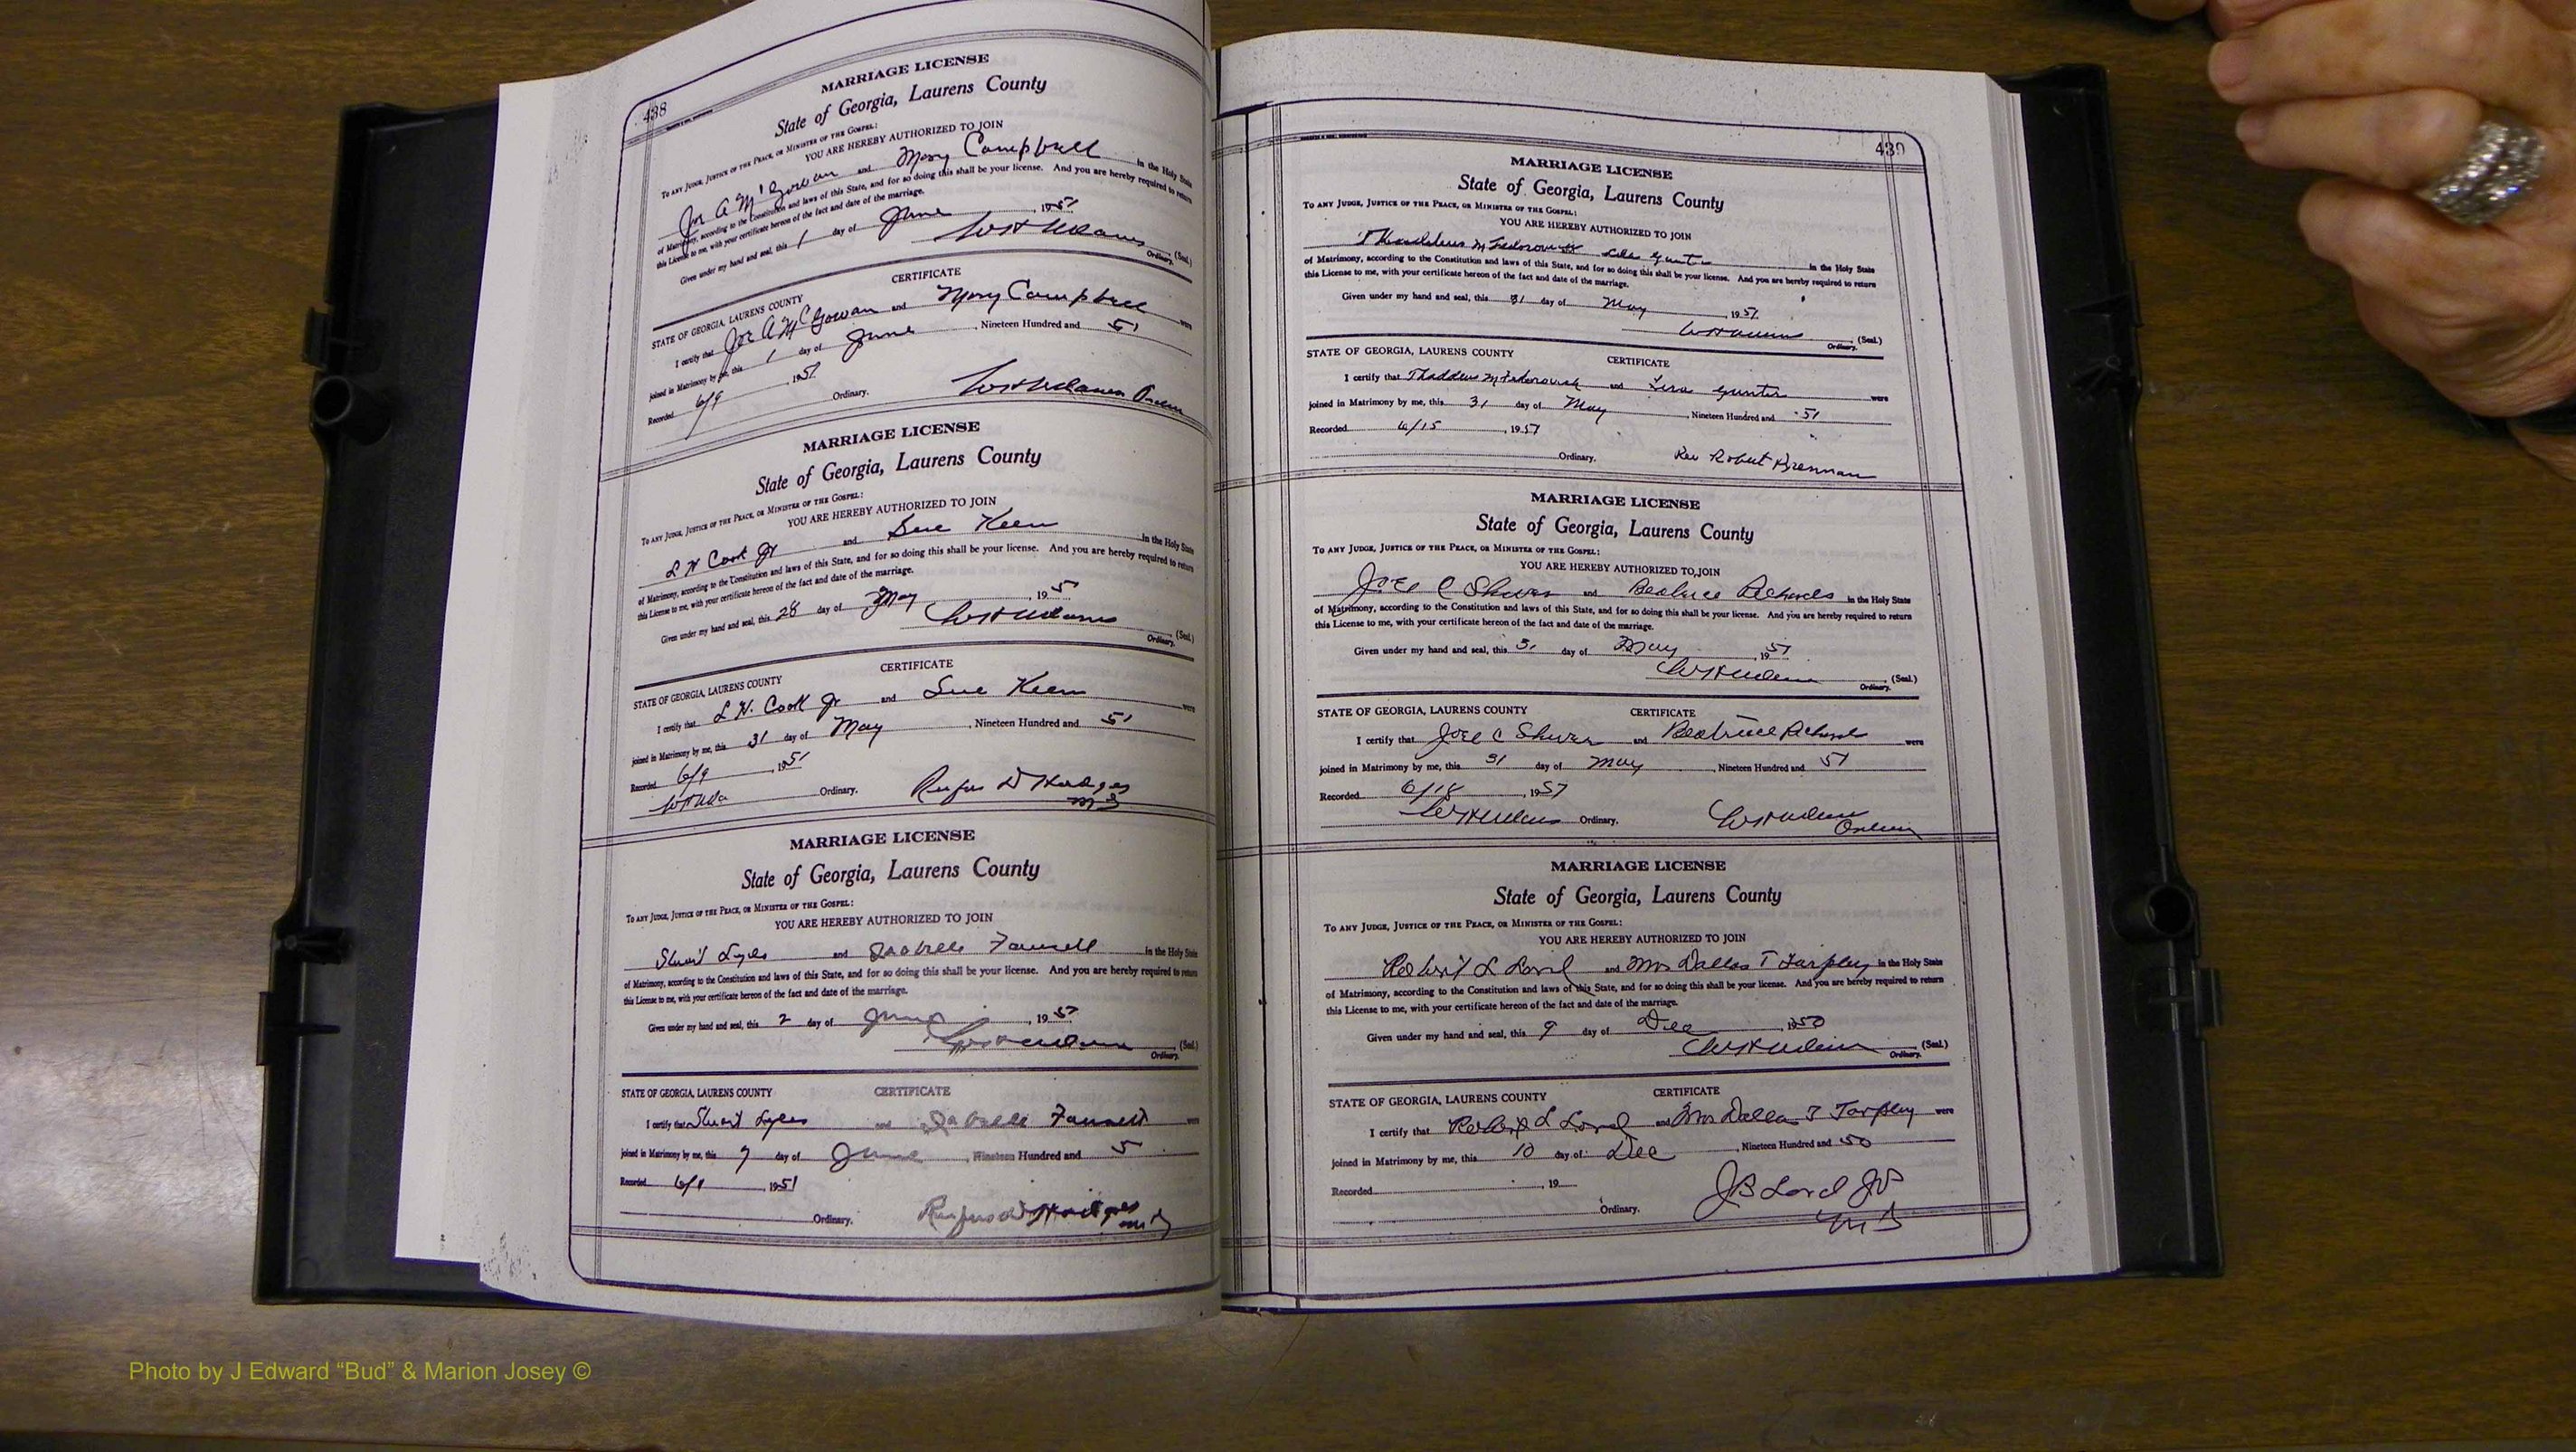 438
MARRIAGE LICENSE
State of Georgia, Laurens County
TO ANY JUDGE, JUSTICE OF THE PEACE, OR MINISTER OF THE GOSPEL:
YOU ARE HEREBY AUTHORIZED TO JOIN
Joe A McGowan and Mary Campbell in the Holy State
of Matrimony, according to the Constitution and laws of this State, and for so doing this shall be your license. And you are hereby required to return
this License to me, with your certificate hereon of the fact and date of the marriage.
Given under my hand and seal, this 1 day of June, 1951
(Seal.)
Ordinary.
CERTIFICATE
STATE OF GEORGIA, LAURENS COUNTY
I certify that Joe A McGowan and Mary Campbell were
joined in Matrimony by me, this 1 day of June, Nineteen Hundred and 51
Recorded 6/9, 1951
Ordinary.
MARRIAGE LICENSE
State of Georgia, Laurens County
TO ANY JUDGE, JUSTICE OF THE PEACE, OR MINISTER OF THE GOSPEL:
YOU ARE HEREBY AUTHORIZED TO JOIN
L H Cook Jr and Sue Keen in the Holy State
of Matrimony, according to the Constitution and laws of this State, and for so doing this shall be your license. And you are hereby required to return
this License to me, with your certificate hereon of the fact and date of the marriage.
Given under my hand and seal, this 28 day of May, 195
(Seal.)
Ordinary.
CERTIFICATE
STATE OF GEORGIA, LAURENS COUNTY
I certify that L H. Cook Jr and Sue Keen were
joined in Matrimony by me, this 31 day of May, Nineteen Hundred and 51
Recorded 6/9, 1951
Ordinary. Rufus D Hodges
MARRIAGE LICENSE
State of Georgia, Laurens County
TO ANY JUDGE, JUSTICE OF THE PEACE, OR MINISTER OF THE GOSPEL:
YOU ARE HEREBY AUTHORIZED TO JOIN
and in the Holy State
of Matrimony, according to the Constitution and laws of this State, and for so doing this shall be your license. And you are hereby required to return
this License to me, with your certificate hereon of the fact and date of the marriage.
Given under my hand and seal, this 2 day of June, 195
(Seal.)
Ordinary.
STATE OF GEORGIA, LAURENS COUNTY CERTIFICATE
I certify that and were
joined in Matrimony by me, this day of June, Nineteen Hundred and 5
Recorded, 1951
Ordinary.
439
MARRIAGE LICENSE
State of Georgia, Laurens County
TO ANY JUDGE, JUSTICE OF THE PEACE, OR MINISTER OF THE GOSPEL:
YOU ARE HEREBY AUTHORIZED TO JOIN
in the Holy State
of Matrimony, according to the Constitution and laws of this State, and for so doing this shall be your license. And you are hereby required to return
this License to me, with your certificate hereon of the fact and date of the marriage.
Given under my hand and seal, this 31 day of May, 1951
(Seal.)
Ordinary.
STATE OF GEORGIA, LAURENS COUNTY CERTIFICATE
I certify that Thaddeus M Fedorovich and Gunter were
joined in Matrimony by me, this 31 day of May, Nineteen Hundred and 51
Recorded 6/15, 1951
Ordinary. Rev Robert Brennan
MARRIAGE LICENSE
State of Georgia, Laurens County
TO ANY JUDGE, JUSTICE OF THE PEACE, OR MINISTER OF THE GOSPEL:
YOU ARE HEREBY AUTHORIZED TO JOIN
Joel C and Beatrice Richards in the Holy State
of Matrimony, according to the Constitution and laws of this State, and for so doing this shall be your license. And you are hereby required to return
this License to me, with your certificate hereon of the fact and date of the marriage.
Given under my hand and seal, this 31 day of May, 1951
(Seal.)
Ordinary.
STATE OF GEORGIA, LAURENS COUNTY CERTIFICATE
I certify that Joel C and Beatrice Richards were
joined in Matrimony by me, this 31 day of May, Nineteen Hundred and 51
Recorded 6/18, 1951
Ordinary.
MARRIAGE LICENSE
State of Georgia, Laurens County
TO ANY JUDGE, JUSTICE OF THE PEACE, OR MINISTER OF THE GOSPEL:
YOU ARE HEREBY AUTHORIZED TO JOIN
Robert L Lord and Mrs Dallas T Tarpley in the Holy State
of Matrimony, according to the Constitution and laws of this State, and for so doing this shall be your license. And you are hereby required to return
this License to me, with your certificate hereon of the fact and date of the marriage.
Given under my hand and seal, this 9 day of Dec, 1950
(Seal.)
Ordinary.
STATE OF GEORGIA, LAURENS COUNTY CERTIFICATE
I certify that Robert L Lord and Mrs Dallas T Tarpley were
joined in Matrimony by me, this 10 day of Dec, Nineteen Hundred and 50
Recorded, 19
Ordinary. J B Lord JP
Photo by J Edward “Bud” & Marion Josey ©